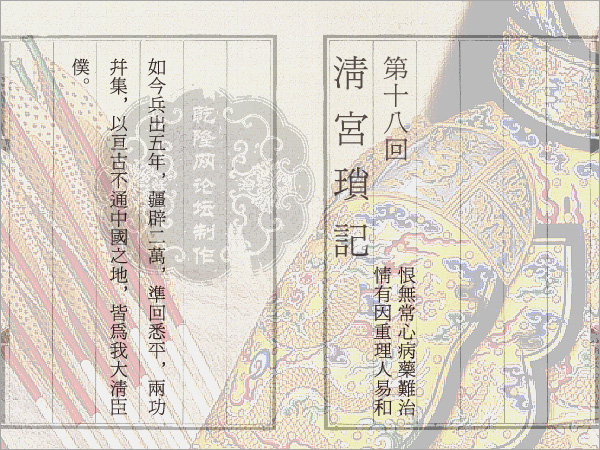 第十八回
清宮瑣記
恨無常心病藥難治
情有因重理人易和
如今兵出五年，疆辟二萬，準回悉平，兩功
幷集，以亘古不通中國之地，皆爲我大清臣
僕。
乾隆网论坛制作